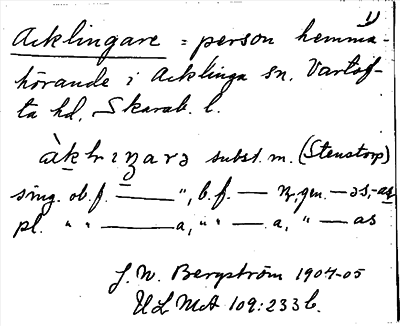 1)
Acklingare = person hemma-
hörande i Acklinga sn. Vartof-
ta hd, Skarab. l.
subst. m. (Stenstorp)
sing. ob. f. —— ", b. f. — n, gen. — əs, -as
pl. " " —— a, " " — a, " — as
J. W. Bergström 1904-05
ULMA 109:233 b.